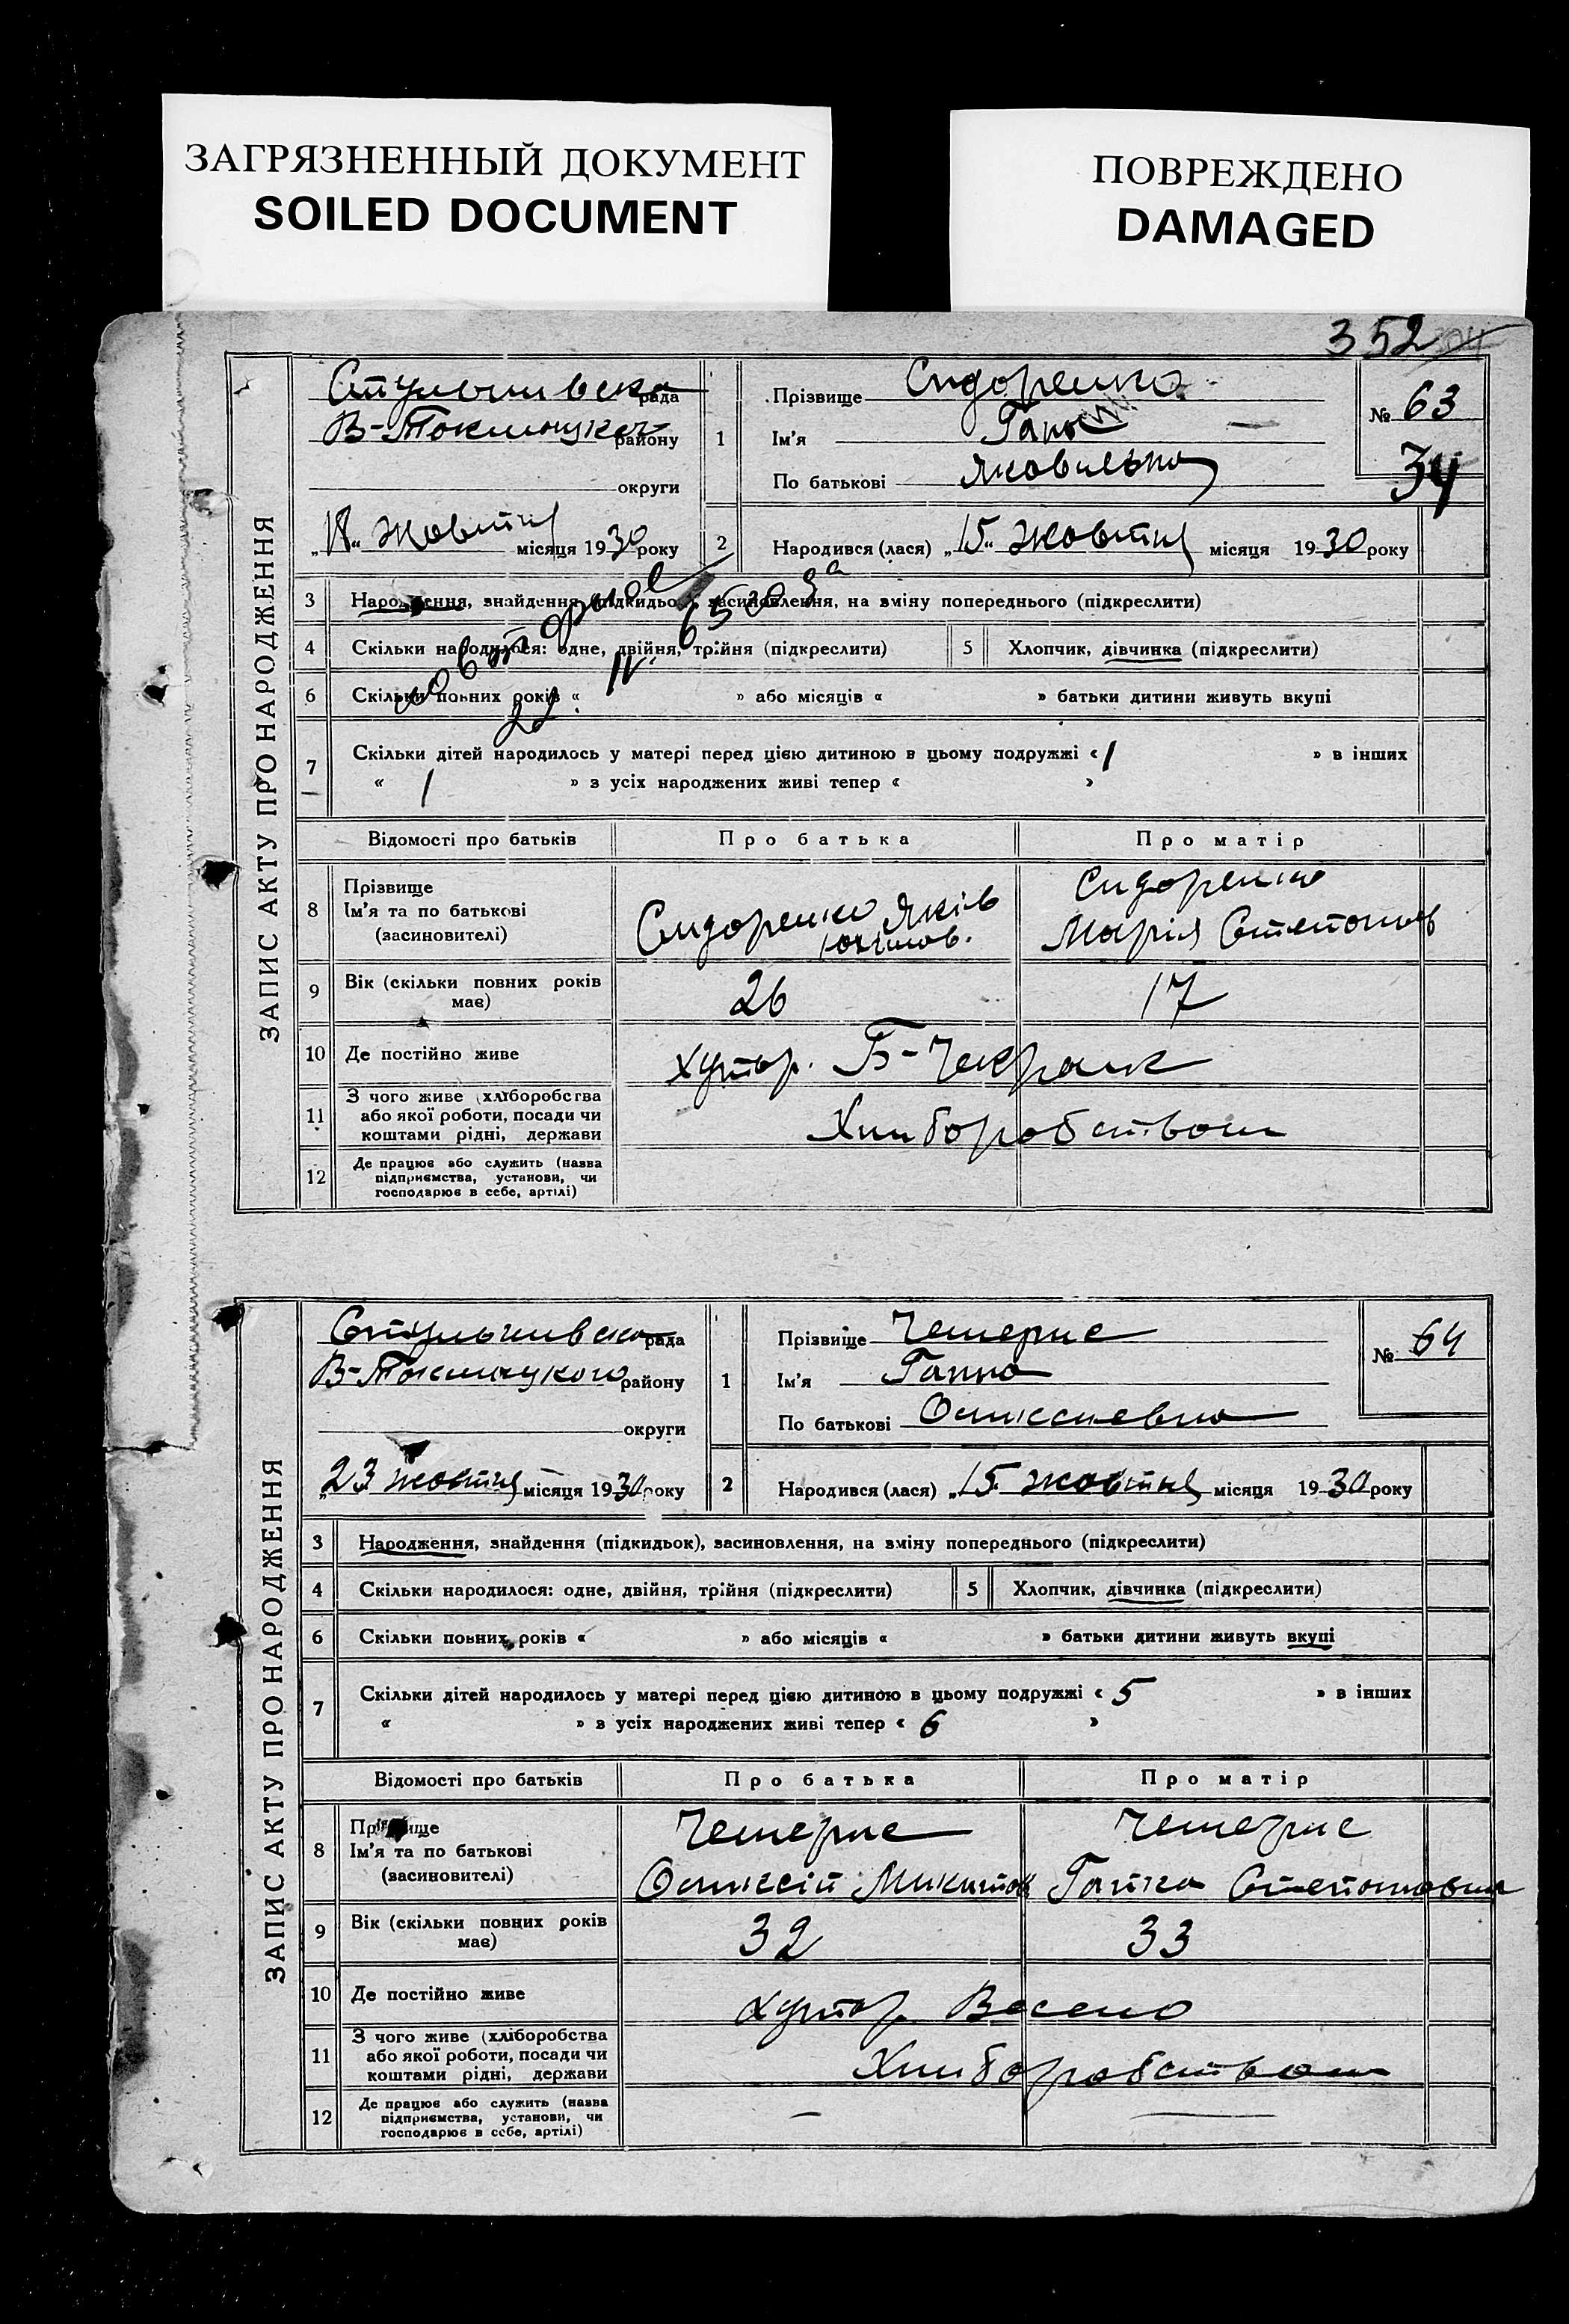 ЗАГРЯЗНЕННЫЙ ДОКУМЕНТ
SOILED DOCUMENT
ПОВРЕЖДЕНО
DAMAGED
352
ЗАПИС АКТУ ПРО НАРОДЖЕННЯ
рада
В-Токмацког району
округи
"18" Жовтня місяця 1930 року
1
Прізвище Сидоренко
Ім'я Ганна
По батькові Яковлевна
№ 63
34
2 Народився (лася) "15" Жовтня місяця 1930 року
3 Народження, знайдення (підкидьок), засиновлення, на зміну попереднього (підкреслити)
4 Скільки народилося: одне, двійня, трійня (підкреслити)
5 Хлопчик, дівчинка (підкреслити)
6 Скільки повних років « » або місяців « » батьки дитини живуть вкупі
7 Скільки дітей народилось у матері перед цією дитиною в цьому подружжі « 1 » в інших
« 1 » з усіх народжених живі тепер « »
Відомості про батьків Про батька Про матір
8 Прізвище
Ім'я та по батькові
(засиновителі)
Сидоренко Яків
Юхимов.
Сидоренко
Марія Степанов
9 Вік (скільки повних років має) 26 17
10 Де постійно живе хутор. Б-Чекрак
11 З чого живе (хліборобства
або якої роботи, посади чи
коштами рідні, держави
Хліборобством
12 Де працює або служить (назва
підприємства, установи, чи
господарює в себе, артілі)
ЗАПИС АКТУ ПРО НАРОДЖЕННЯ
рада
В-Токмацкого району
округи
"23 жовтня місяця 1930 року
1
Прізвище Чемерис
Ім'я Ганна
По батькові Оликсиевна
№ 64
2 Народився (лася) "15" жовтня місяця 1930 року
3 Народження, знайдення (підкидьок), засиновлення, на зміну попереднього (підкреслити)
4 Скільки народилося: одне, двійня, трійня (підкреслити)
5 Хлопчик, дівчинка (підкреслити)
6 Скільки повних років « » або місяців « » батьки дитини живуть вкупі
7 Скільки дітей народилось у матері перед цією дитиною в цьому подружжі « 5 » в інших
« » з усіх народжених живі тепер « 6 »
Відомості про батьків Про батька Про матір
8 Прізвище
Ім'я та по батькові
(засиновителі)
Чемерис
Оликсій Микитов
Чемерис
Ганна Степановна
9 Вік (скільки повних років має) 32 33
10 Де постійно живе хутор Весело
11 З чого живе (хліборобства
або якої роботи, посади чи
коштами рідні, держави
Хліборобством
12 Де працює або служить (назва
підприємства, установи, чи
господарює в себе, артілі)